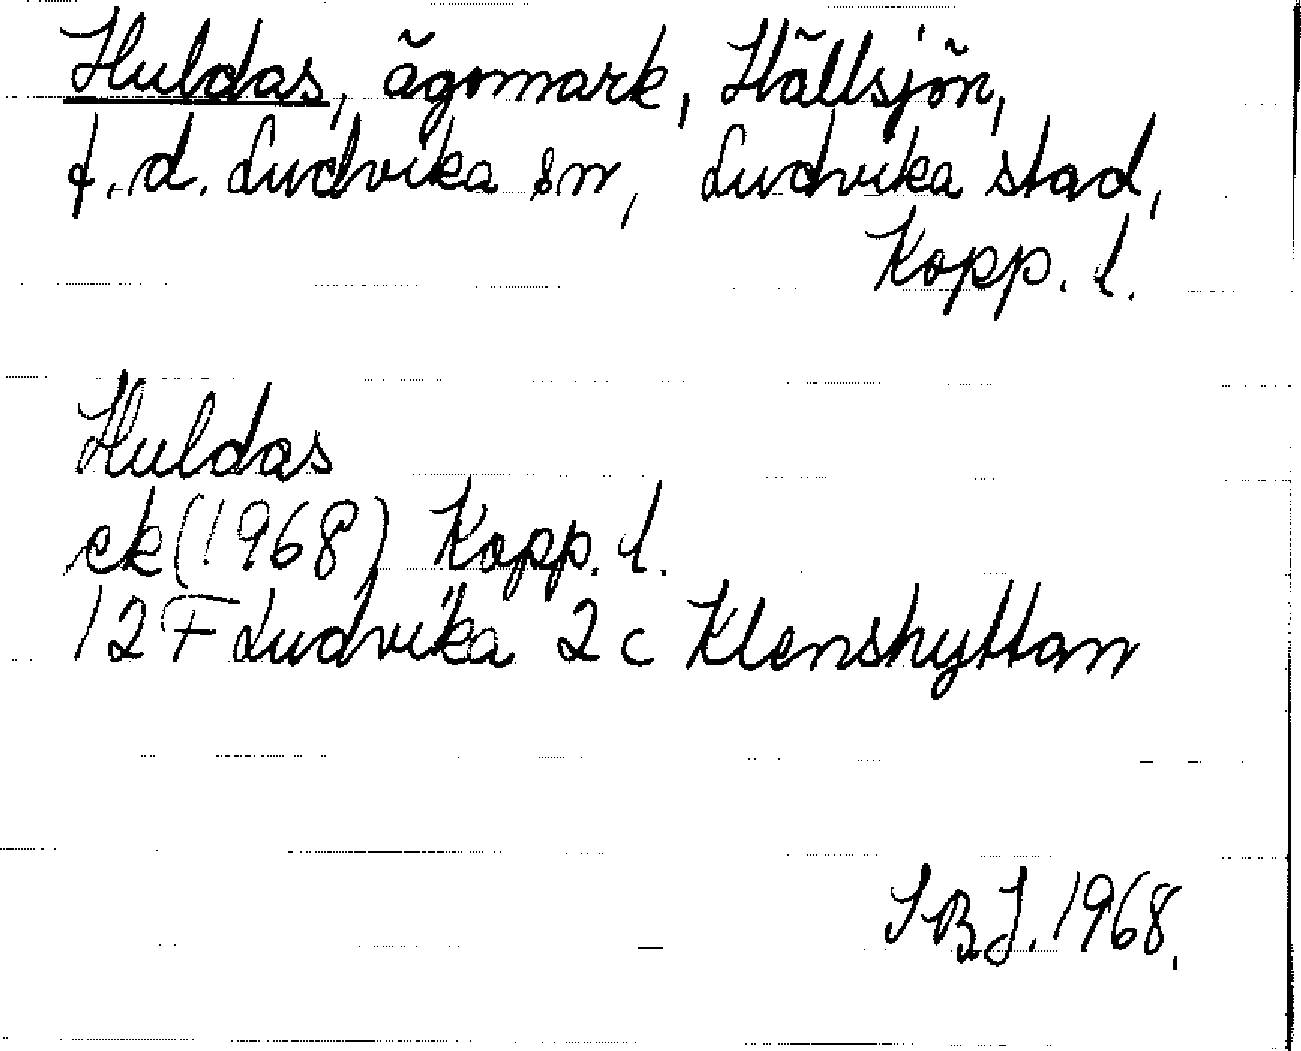 Huldas, ägomark, Hällsjön,
f.d. Ludvika sn, Ludvika stad,
Kopp. l.
Huldas
ek (1968) Kopp. l.
12 F Ludvika 2 c Klenshyttan
SBJ. 1968.